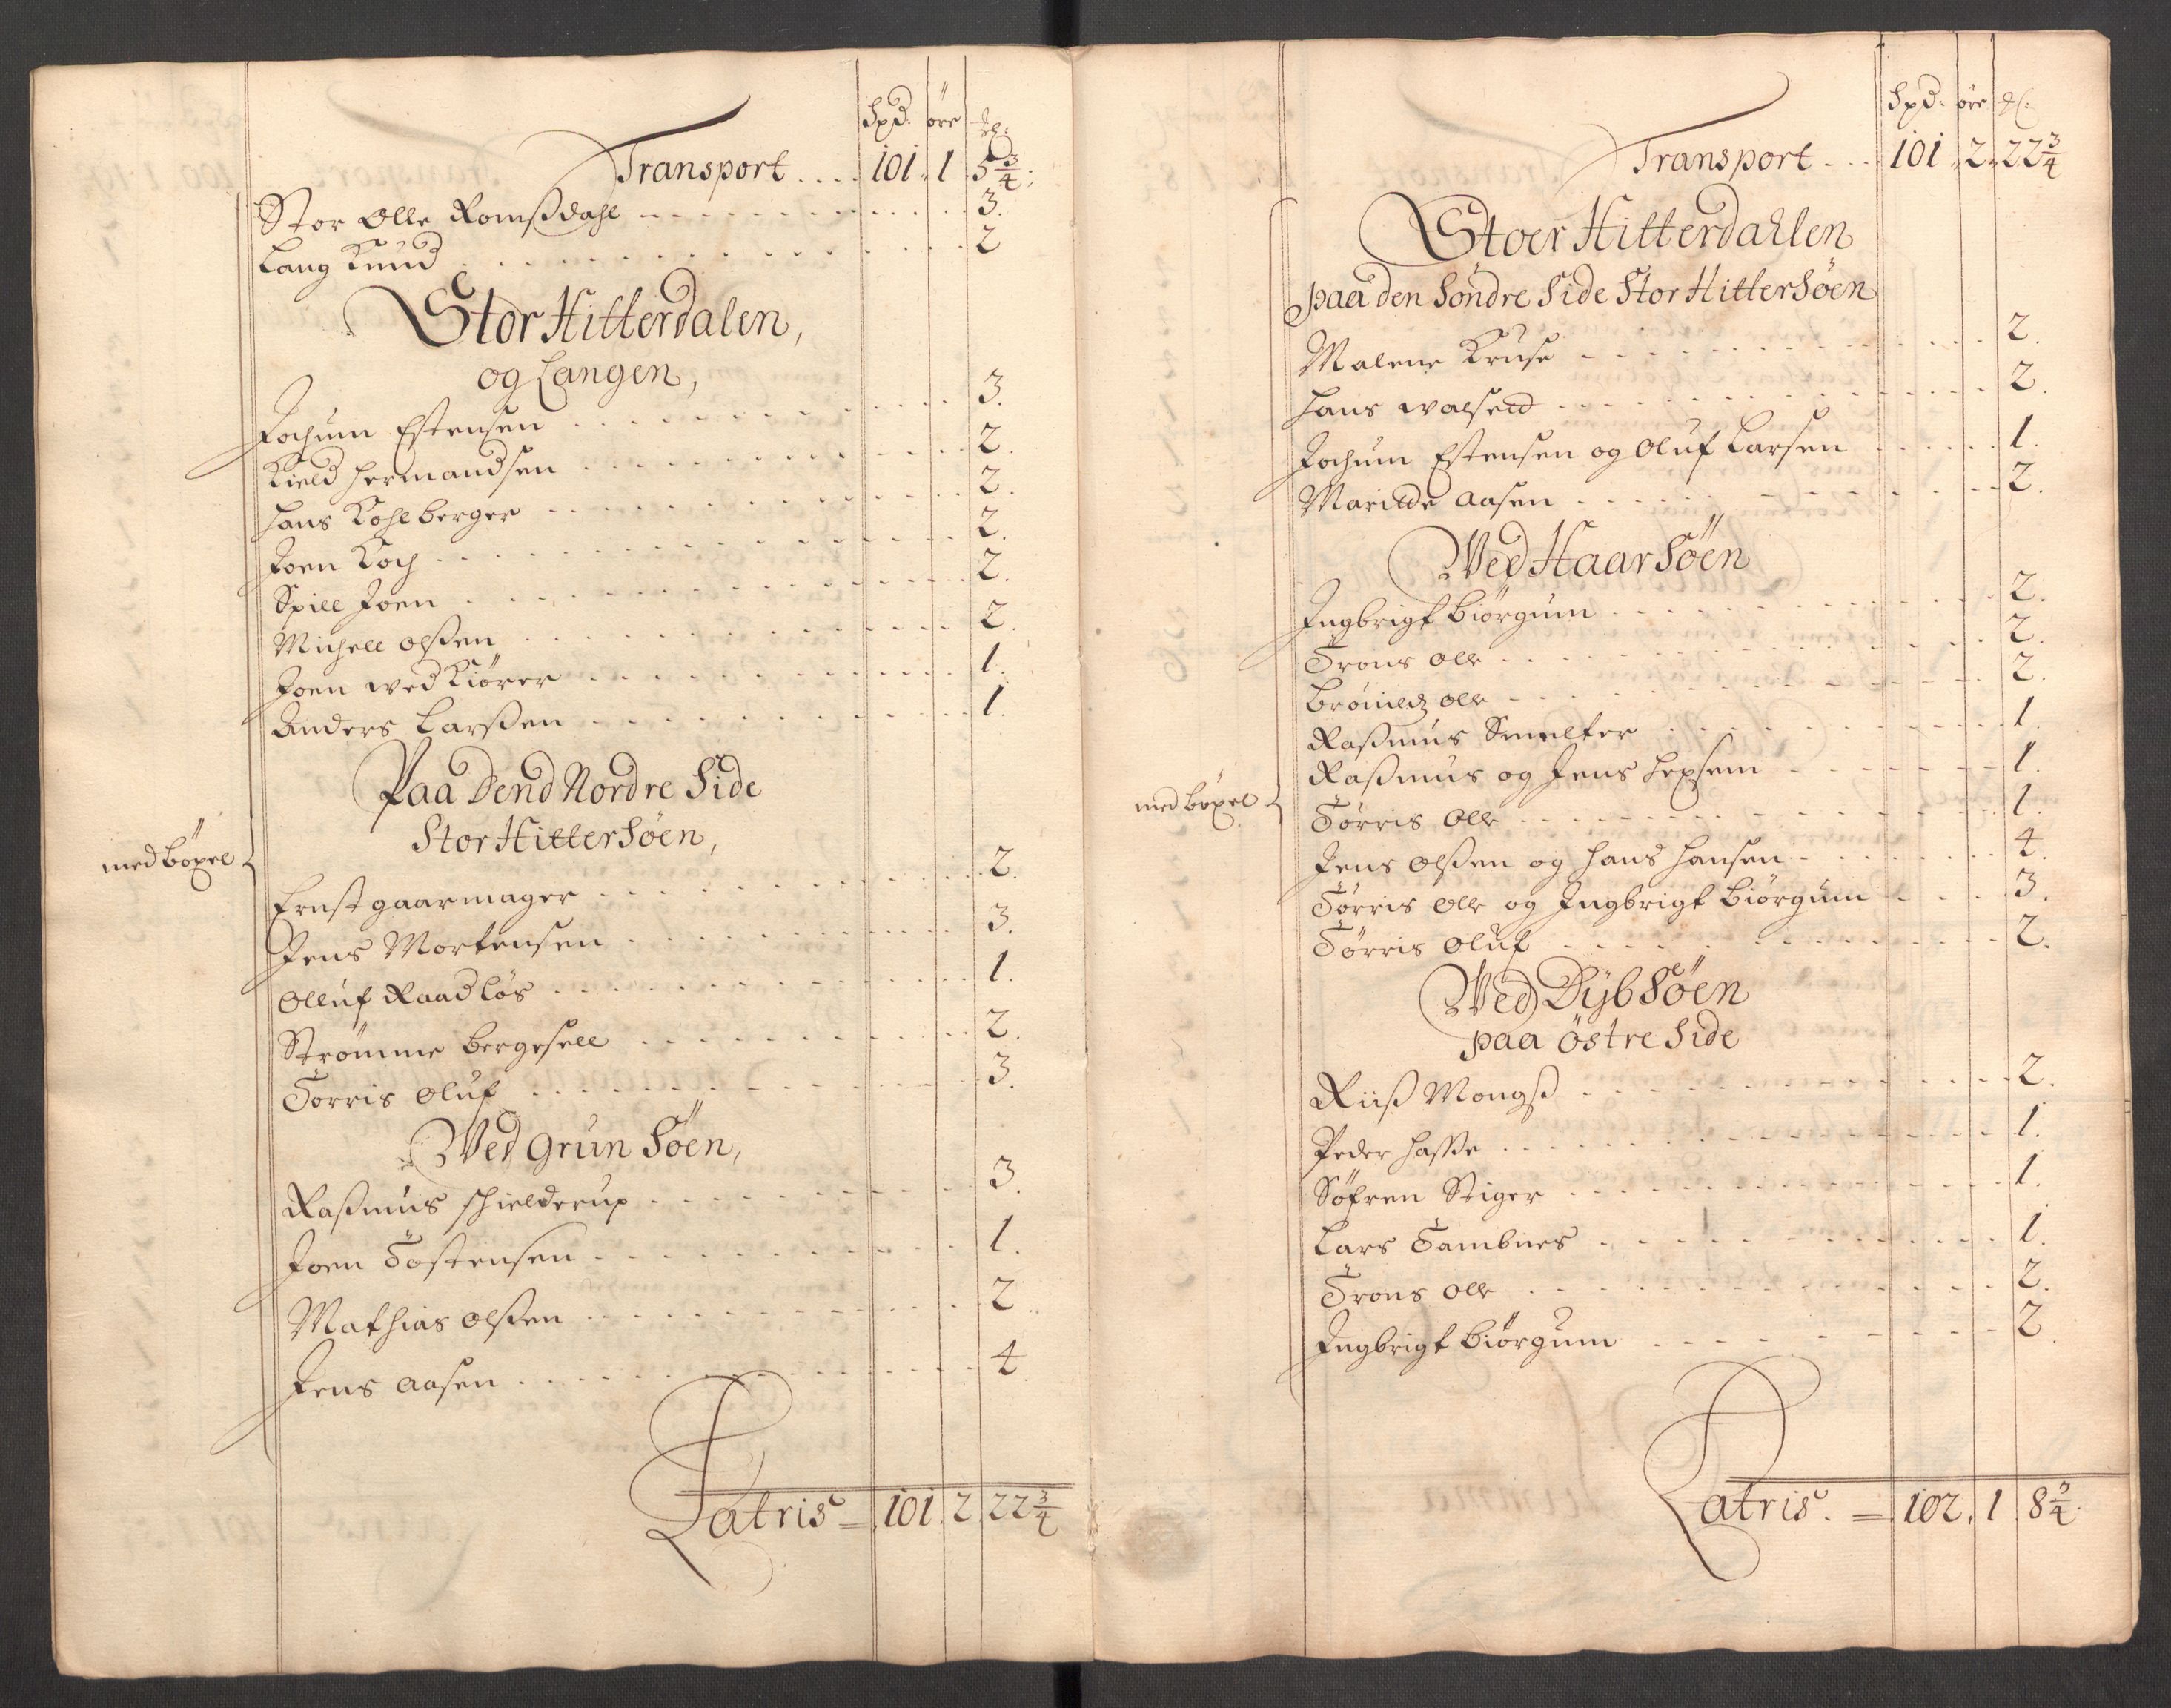 Spd. öre ₰l:
Transport .... 101. 1 5 3/4.
Stor Olle Romßdahl - - - 3.
Lang Knud . . . 2
Stor Hitterdalen,
og Langen,
Jochum Estensen . . . 3.
Kield Hermandsen . . . 2.
Hans Kohlberger - - - 2.
Joen Koch . . . 2.
Spill Joen . . . 2.
Michell olßen . . . 2.
Joen wed Kiörer . . . 1.
Anders Larßen . . . 1.
Paa Dend Nordre Side
Stor Hitter Söen,
med böxel
Ernst gaarmager . . . 2.
Jens Mortensen . . . 3.
Olluf Raadlös . . . 1.
Strömme bergesell . . . 2.
Torris Oluf . . . 3.
Ved Grün Söen,
Raßmus Schielderup . . . 3.
Joen Töstensen . . . 1.
Mathias Olßen . . . 2.
Jens Aasen . . . 4
Latris = 101. 2 22 3/4
Spd. öre ₰l:
Transport . . . 101. 2. 22 3/4
Stoer Hitterdahlen
paa den Söndre Side Stor Hitter Söen
Malene Kruse - - - 2.
Hans walsetd . . . 2.
Jochum Estensen og Oluf Larsen . . . 1.
Maritde Aasen . . . 2.
Ved Haar Söen
Ingbrigt Biörgum . . . 2.
Trons Olle . . . 2.
Olle - - - 2.
Raßmus Smelter . . . 1.
Raßmus og Jens Lepsem - - - 1.
med böxel
Törris Olle . . . 1.
Jens Olßen og Hans Hansen . . . 4.
Törris Olle og Ingbrigt Biörgum . . . 3.
Törris Oluf . . . 2.
Ved Dyb Söen
paa Östre Side
Riiß Mongß . . . 2.
Peder Hasse . . . 1.
Söfren Stiger . . . 1.
Lars Tambnes . . . 1.
Trons Olle . . . 2.
Ingbrigt Biörgum . . . 2.
Latris. = 102. 1 8 3/4.